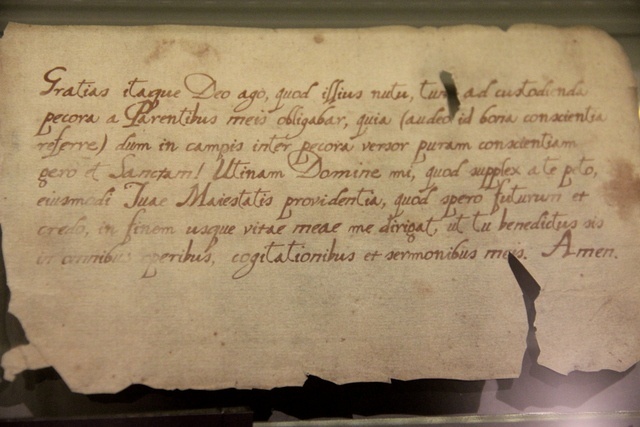 Gratias itaque Deo ago, quod illius nutu, tum ad custodienda
pecora a Parentibus meis obligabar, quia (audeo id bona conscientia
referre) dum in campis inter pecora versor puram conscientiam
gero et Sanctam! Utinam Domine mi, quod supplex a te peto,
eiusmodi Tuae Maiestatis providentia, quod spero futurum et
credo, in finem usque vitae meae me dirigat, ut tu benedictus sis
in omnibus operibus, cogitationibus et sermonibus meis. Amen.